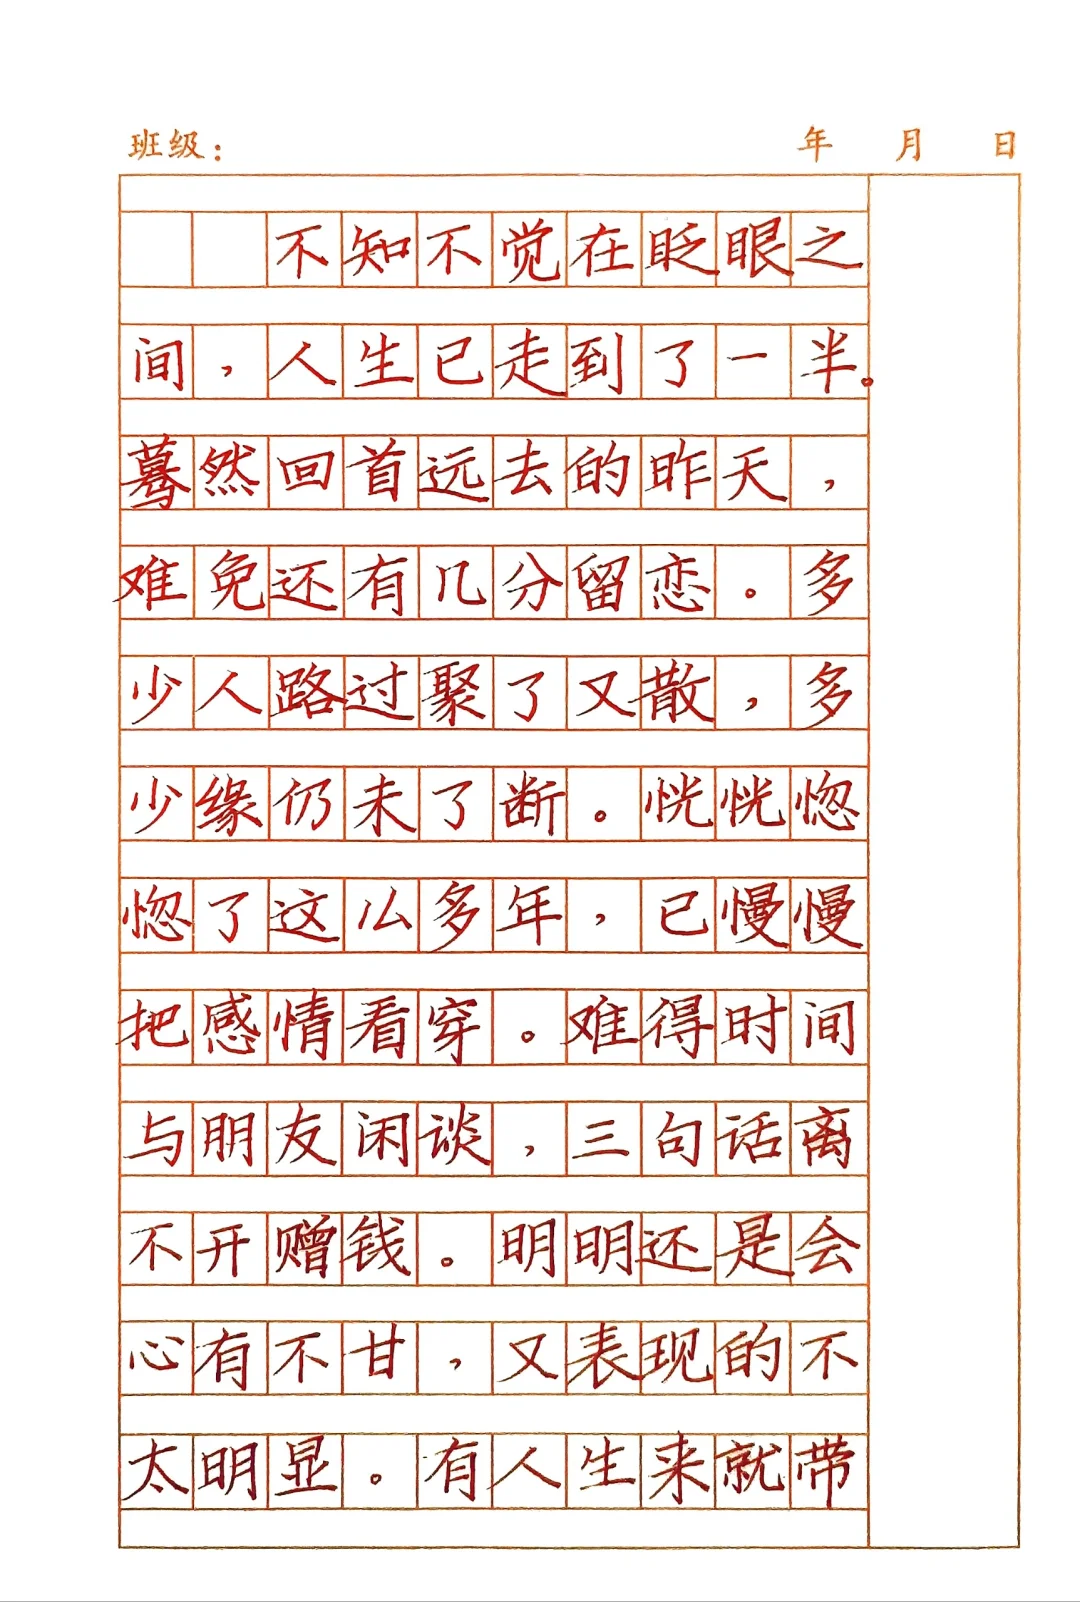 班级： 年 月 日
不知不觉在眨眼之
间，人生已走到了一半。
蓦然回首远去的昨天，
难免还有几分留恋。多
少人路过聚了又散，多
少缘仍未了断。恍恍惚
惚了这么多年，已慢慢
把感情看穿。难得时间
与朋友闲谈，三句话离
不开赠钱。明明还是会
心有不甘，又表现的不
太明显。有人生来就带